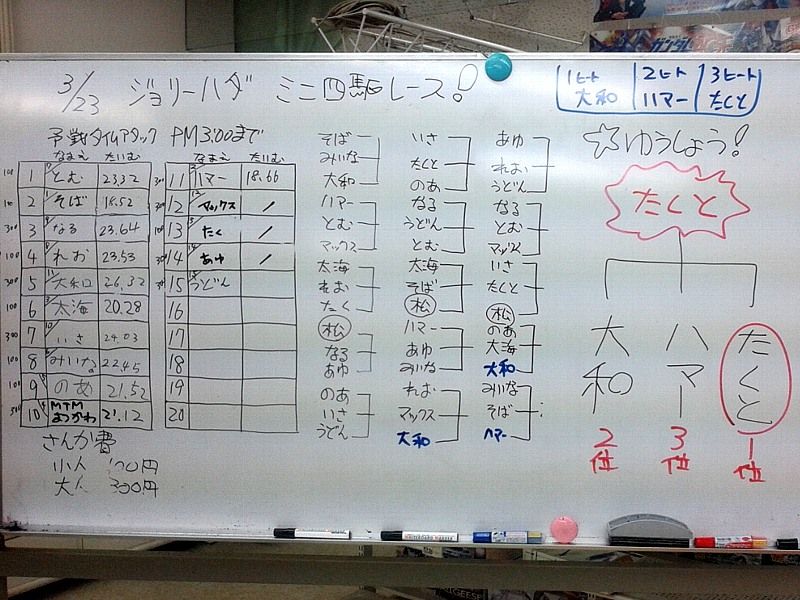 3/23 ジョリーハダ ミニ四駆レース!
1ヒート 2ヒート 3ヒート
大和 ハマー たくと
予戦タイムアタック PM3:00まで
なまえ たいむ なまえ たいむ
100 1 とむ 23.32
100 2 そば 18.52
300 3 なる 23.64
100 4 れお 23.53
300 5 大和 26.32
100 6 太海 20.28
300 7 いさ 24.03
100 8 みいな 22.45
100 9 のあ 21.52
10 MTM まつかわ 21.12
300 11 ハマー 18.66
300 12 マックス /
300 13 たく /
300 14 あゆ /
300 15 うどん
16
17
18
19
20
さんか費
小人 100円
大人 300円
そば
みいな
大和
ハマー
とむ
マックス
太海
れお
たく
松
なる
あゆ
のあ
いさ
うどん
いさ
たくと
のあ
なる
うどん
とむ
太海
そば
松
ハマー
あゆ
みいな
れお
マックス
大和
あゆ
れお
うどん
なる
とむ
マックス
いさ
たくと
松
のあ
大海
大和
みいな
そば
ハマー
☆ゆうしょう!
たくと
大和
ハマー
たくと
2位
3位
1位